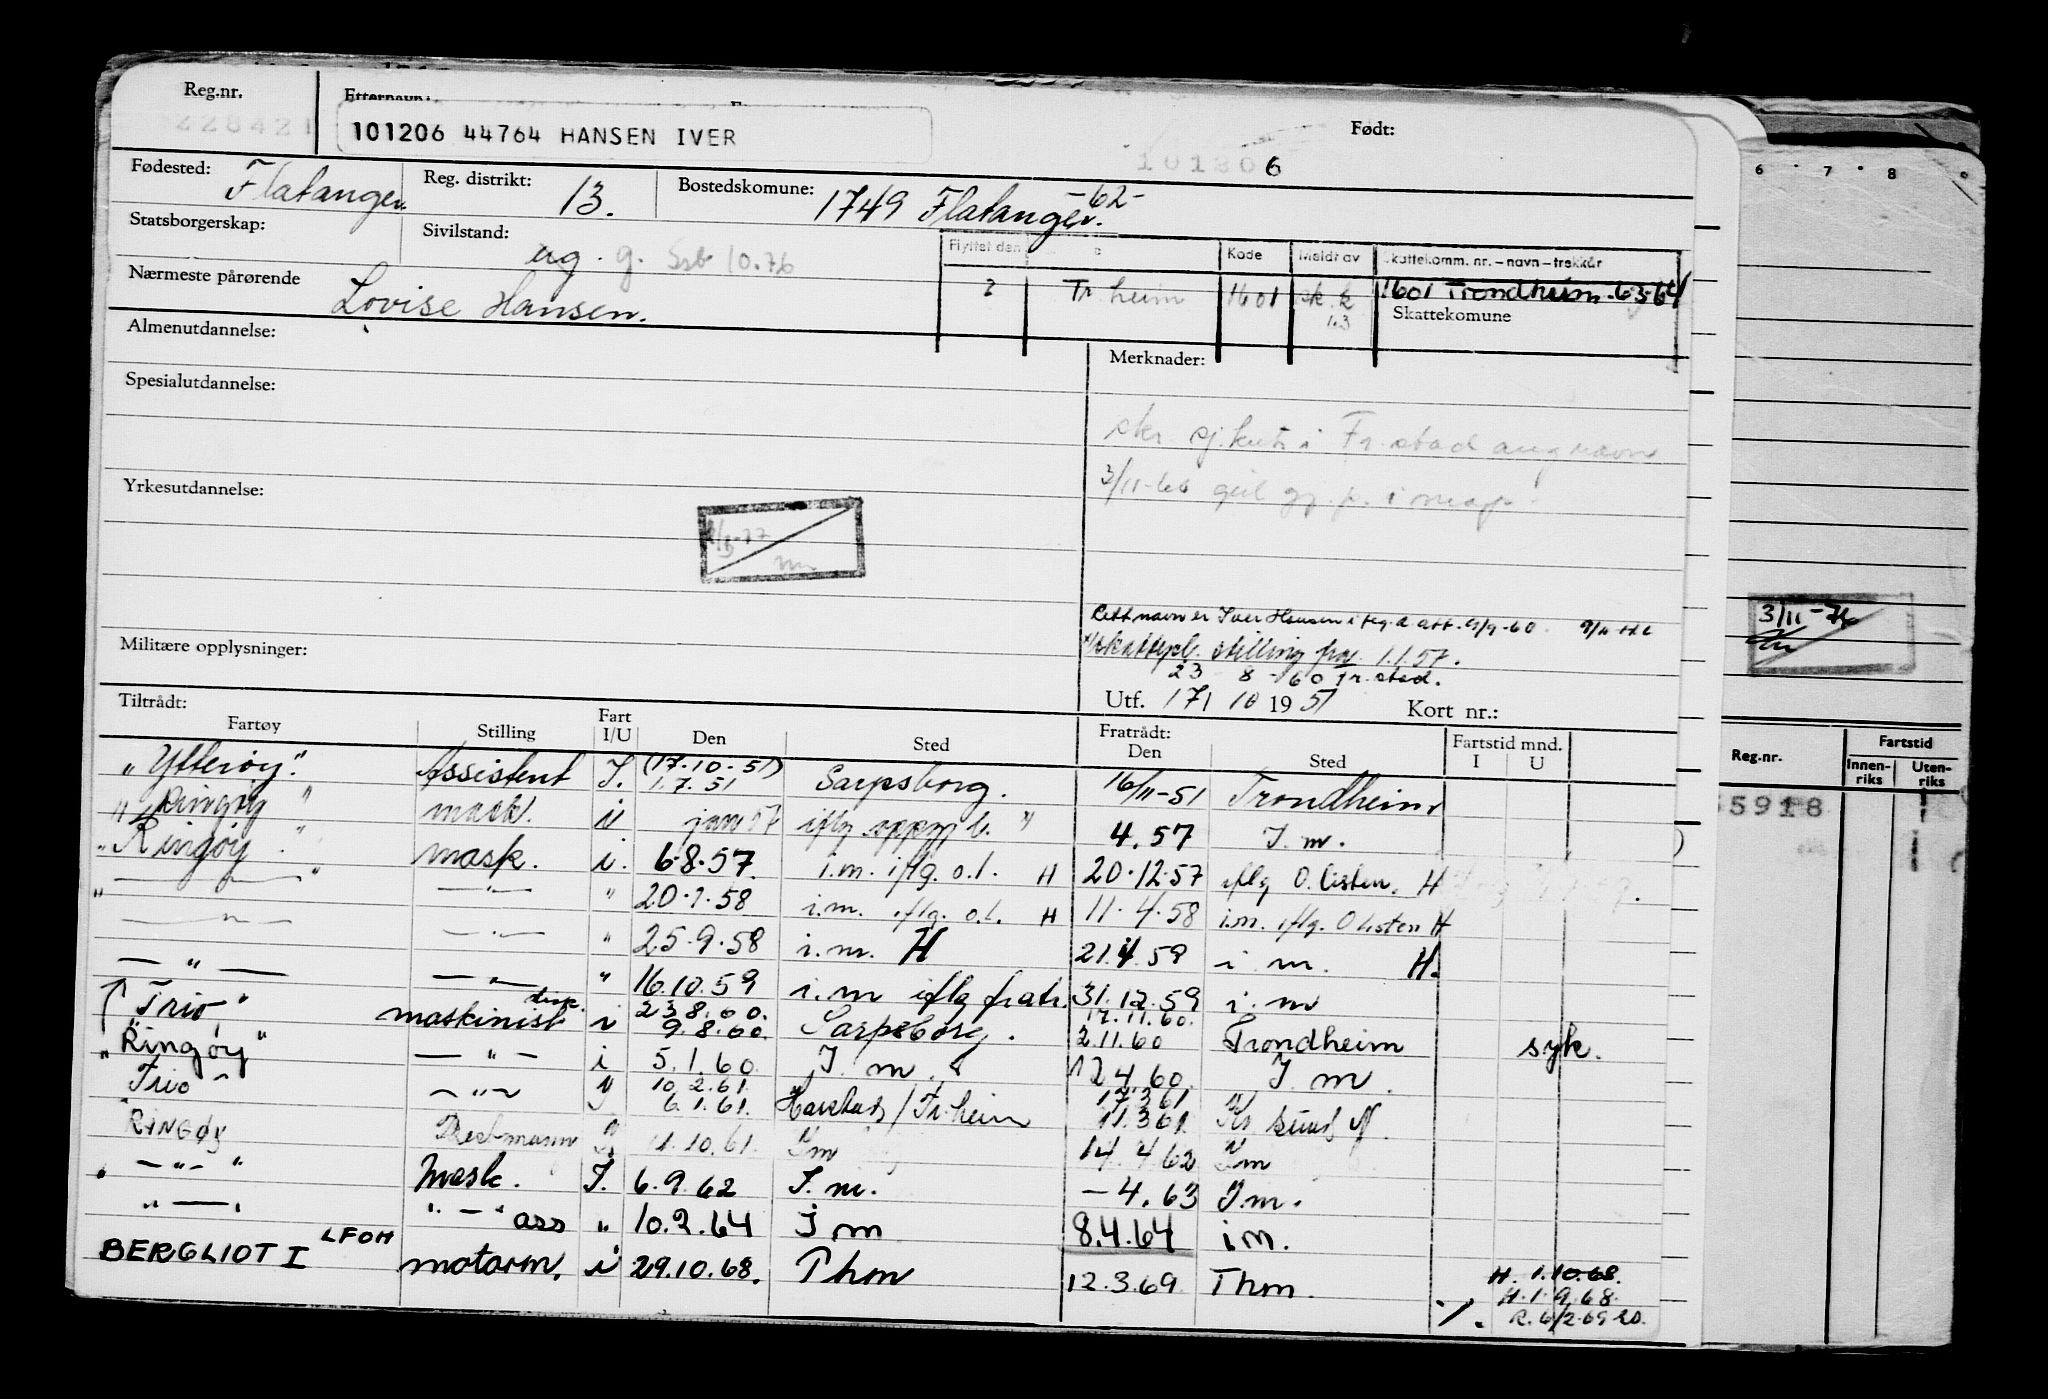 Reg.nr. Etternavn: Født:
101206 44764 HANSEN IVER
6
Fødested: Flatanger. Reg. distrikt: 13. Bostedskomune: 1749 Flatanger. -62-
Statsborgerskap: Sivilstand: ug. g. 10.76
Flyttet den Kode Meldt av Skattekomm. nr.-navn-trekkår
Nærmeste pårørende Lovise Hansen. Tr.heim 1601 sk.k 1.3 1601 Trondheim-63-64
Skattekomune
Almenutdannelse:
Merknader:
Spesialutdannelse:
Fr.stad
3/11-60
Yrkesutdannelse:
Rett navn er Iver Hansen
skattepl. stilling fra 1.1.57.
Militære opplysninger: 23-8-60 Fr.stad.
Utf. 17/10 1951 Kort nr.:
3/11-76
Tiltrådt: Fratrådt:
Fartøy Stilling Fart I/U Den Sted Den Sted Fartstid mnd. I U
"Ytterøy" Assistent I. (17.10.51) 1.7.51 Sarpsborg. 16/11-51 Trondheim
"Ringøy" mask. i jan 57 4.57 I.m.
"Ringøy" mask. i. 6.8.57 i.m. iflg. o.l. H 20.12.57 iflg O.listen. H
" — " — " — " 20.1.58 i.m. iflg. o.l. H 11.4.58 i.m. iflg. O listen H
— " — — " — " 25.9.58 i.m. H 21.4.59 i.m. H.
— " — — " — " 16.10.59 i.m iflg fratr. 31.12.59 i.m
"Trio" maskinist i 23.8.60. 9.8.60. Sarpsborg. 17.11.60. 2.11.60 Trondheim syk.
"Ringøy" — " — i 5.1.60 I.m. 12.4.60. I m.
"Trio" — " — 10.2.61. 6.1.61. Harstad/Tr.heim 17.3.61 11.3.61. Kr sund N.
RINGØY Restmann 11.10.61. Im 14.4.62 Im
" — " — " Mask. I. 6.9.62 I.m. -4.63 I.m.
" — " " — " ass " 10.2.64 I m 8.4.64 i m.
BERGLIOT I LFOH motorm. i 29.10.68. Thm 12.3.69. Thm.
H. 1.10.68.
H. 1.9.68.
R. 6/2-69
6 7 8
Reg.nr. Fartstid
Innen-riks Uten-riks
5918